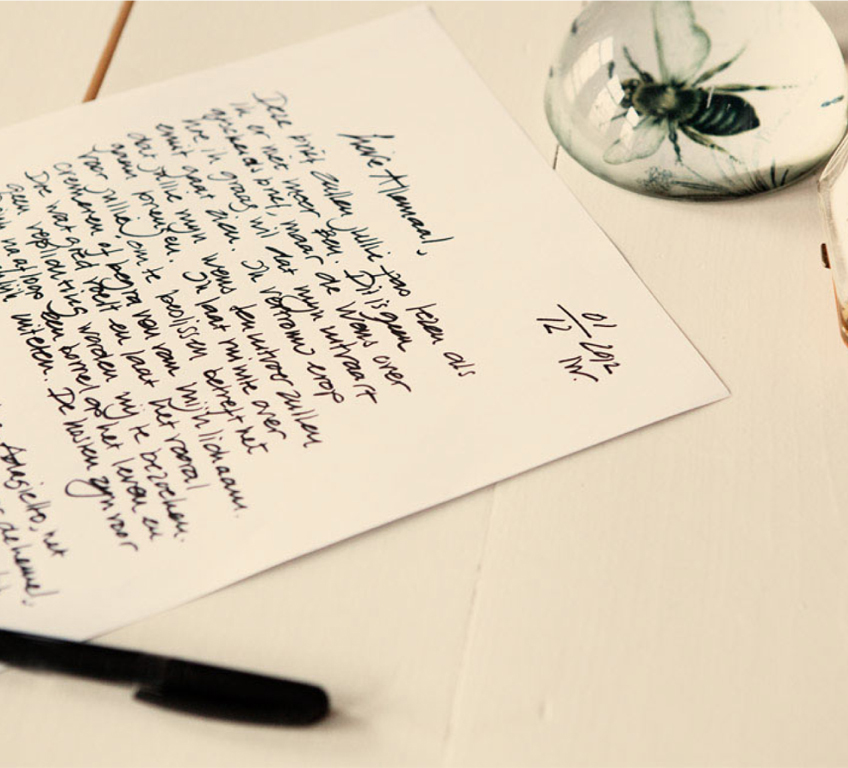 01/12 2012
Lieve Allemaal,
Deze brief zullen jullie pas lezen als
ik er niet meer ben. Dit is geen
afscheidsbrief, maar de wens over
hoe ik graag wil dat mijn uitvaart
eruit gaat zien. Ik vertrouw erop
dat jullie mijn wens ten uitvoer zullen
gaan brengen. Ik laat ruimte over
voor jullie, om te beslissen betreft het
cremeren of begraven van mijn lichaam.
Doe wat goed voelt en laat het vooral
geen verplichting worden mij te bezoeken.
naafloop een borrel op het leven en
De kosten zijn voor
Adagietto, het
de hemel.